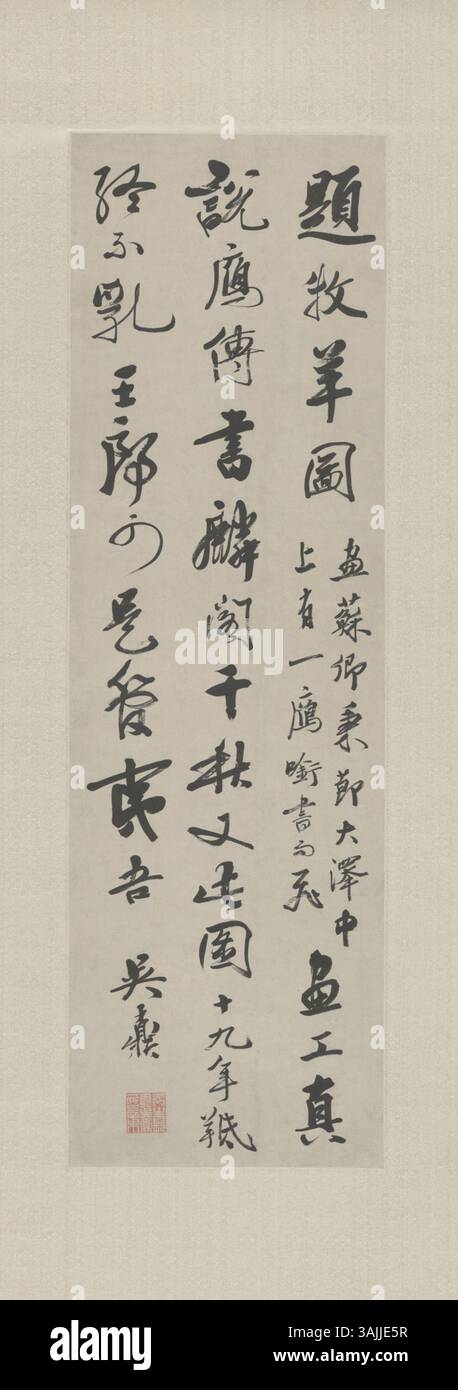 題牧羊圖
畫蘇卿秉節大澤中
上有一鴈啣書而飛
畫工真
說鴈傳書麟閣千秋又此圖十九年羝
終不乳王可是夷吾
吳
alamy
Image ID: 3AJJE5R
www.alamy.com